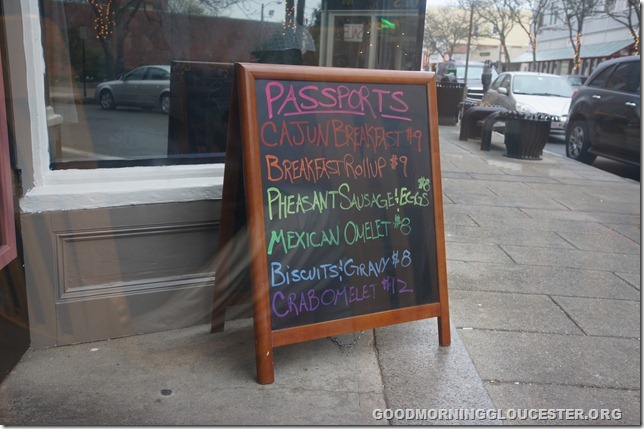 PASSPORTS
CAJUN BREAKFAST $9
BREAKFAST ROLLUP $9
PHEASANT SAUSAGE & EGGS $8
MEXICAN OMELET $8
BISCUITS & GRAVY $8
CRAB OMELET $12
GOODMORNINGGLOUCESTER.ORG